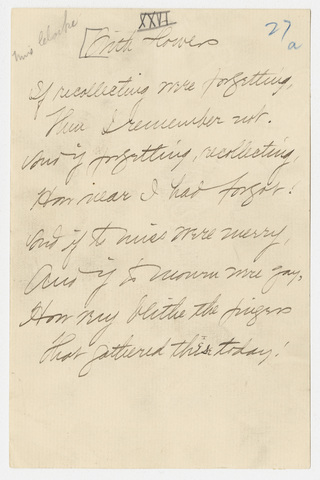 XXVI
27
a
Mrs Clarke
[With flowers
If recollecting were forgetting,
Then I remember not.
And if forgetting, recollecting,
How near I had forgot!
And if to miss were merry,
And if to mourn were gay,
How very blithe the fingers
That gathered this, today!